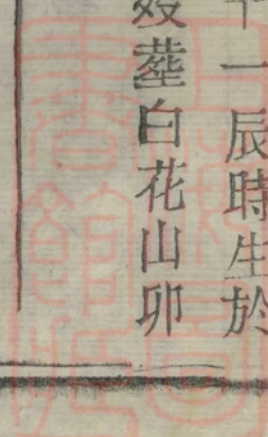 十一辰時生於
塟白花山卯